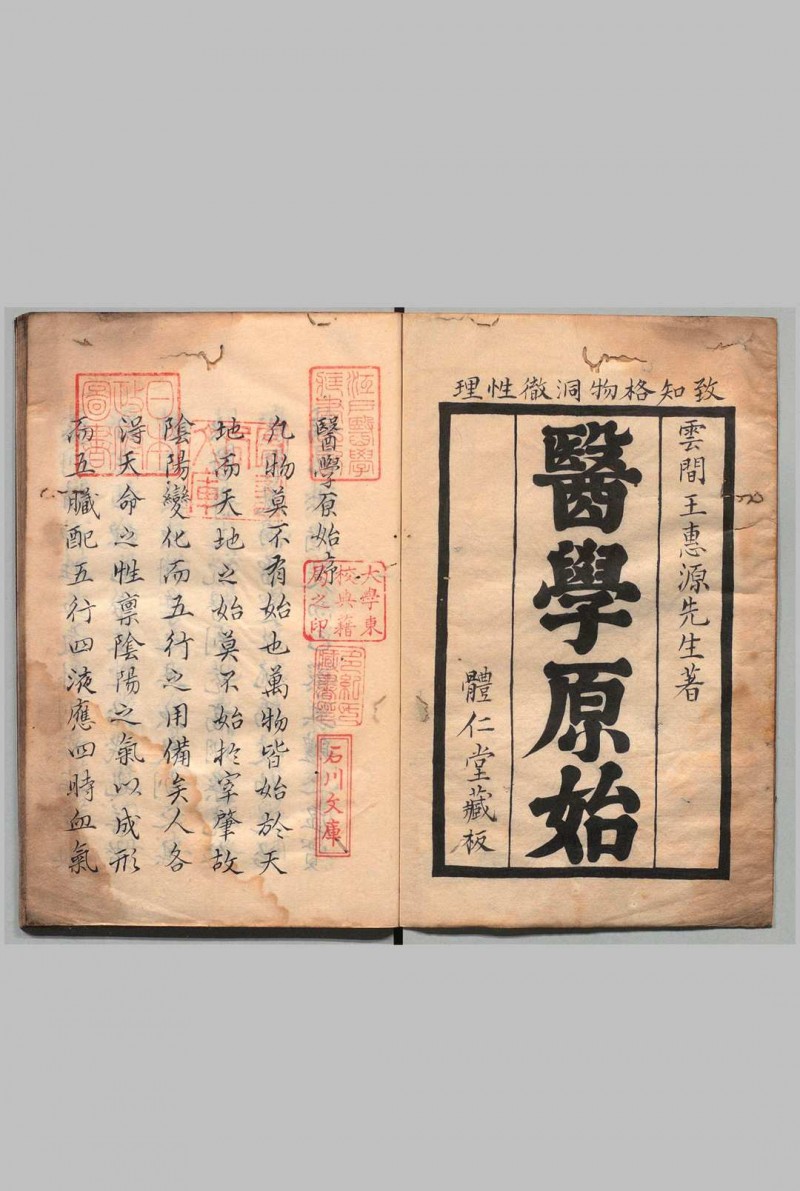 致知格物洞徹性理
雲間王惠源先生著
醫學原始
體仁堂藏板
醫學原始序
凡物莫不有始也萬物皆始於天
地而天地之始莫不始於宰肇故
陰陽變化而五行之用備矣人各
得天命之性禀陰陽之氣以成形
而五臟配五行四液應四時血氣
江戶醫學
大學東
校典籍
局之印
石川文庫
日本
圖書